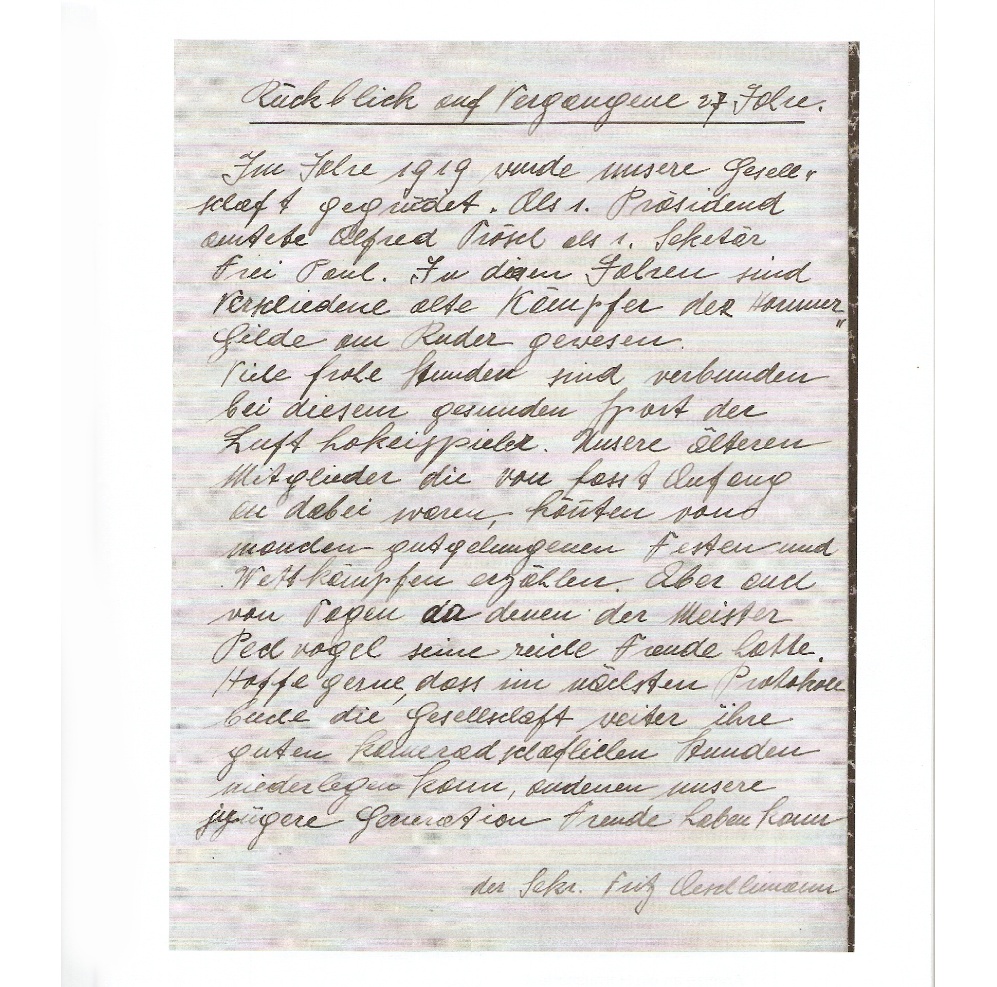 Rückblick auf Vergangene 27 Jahre.
Im Jahre 1919 wurde unsere Gesell-
schaft gegründet. Als 1. Präsidend
amtete Alfred Trösch als 1. Sekretär
Frei Paul. In diesen Jahren sind
Verschiedene alte Kämpfer der Hammer-
Gilde am Ruder gewesen.
Viele frohe Stunden sind verbunden
bei diesem gesunden Sport der
Luft hokeispieler. Unsere älteren
Mitglieder die von fasst Anfang
an dabei waren, könnten von
manchen gutgelungenen Festen und
Wettkämpfen erzählen. Aber auch
von Tagen da denen der Meister
Pechvogel seine reiche Freude hatte.
Hoffe gerne, dass im nächsten Protokoll
buche die Gesellschaft weiter ihre
guten kameradschaftlichen Stunden
niederlegen kann, andenen unsere
jüngere Generation Freude haben kann
der Sekr. Fritz Aeschlimann